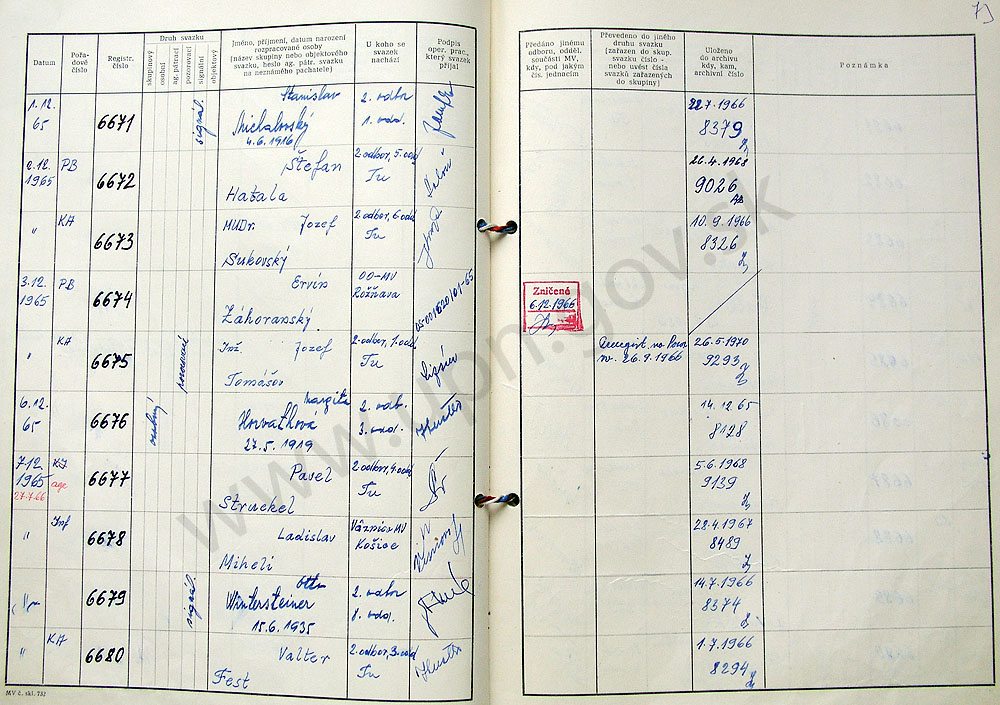 Datum
Pořa-
dové
číslo
Registr.
číslo
Druh svazku
skupinový
osobní
ag. pátrací
pozorovací
signální
objektový
Jméno, příjmení, datum narození
rozpracované osoby
(název skupiny nebo objektového
svazku, heslo ag. pátr. svazku
na neznámého pachatele)
U koho se
svazek
nachází
Podpis
oper. prac.,
který svazek
přijal
Předáno jinému
odboru, odděl.
součásti MV,
kdy, pod jakým
čís. jednacím
Převedeno do jiného
druhu svazku
(zařazen do skup.
svazku číslo -
nebo uvést čísla
svazků zařazených
do skupiny)
Uloženo
do archivu
kdy, kam,
archivní číslo
Poznámka
1.12.
65
6671
signál.
Stanislav
Michalovský
4.6.1916
2. odbor
1. odd.
22.7.1966
8379
2.12.
1965
PB
6672
Štefan
Hatala
2 odbor, 5. odd
Tu
26.4.1968
9026
"
KA
6673
MUDr. Jozef
Sukovský
2 odbor, 6. odd
Tu
10.9.1966
8326
3.12.
1965
PB
6674
Ervín
Záhoranský
OO-MV
Rožňava
Zničeno
6.12.1966
"
KA
6675
Inž. Jozef
Tomášov
2 odbor, 1. odd
Tu
26.9.1966
26.5.1970
9293
6.12.
65
6676
osobný
Margita
Horvathová
27.5.1919
2. odb.
3. odd.
14.12.65
8128
7.12.
1965
27.7.66
KJ
age
6677
Pavel
Struckel
2 odbor, 4. odd
Tu
5.6.1968
9139
"
Inf
6678
Ladislav
Miheli
Väznica MV
Košice
28.4.1967
8489
6679
signál.
Otto
Wintersteiner
15.6.1935
2. odbor
1. odd.
14.7.1966
8374
"
KA
6680
Valter
Fest
2 odbor, 3. odd
Tu
1.7.1966
8294
MV č. skl. 732
www.upn.gov.sk